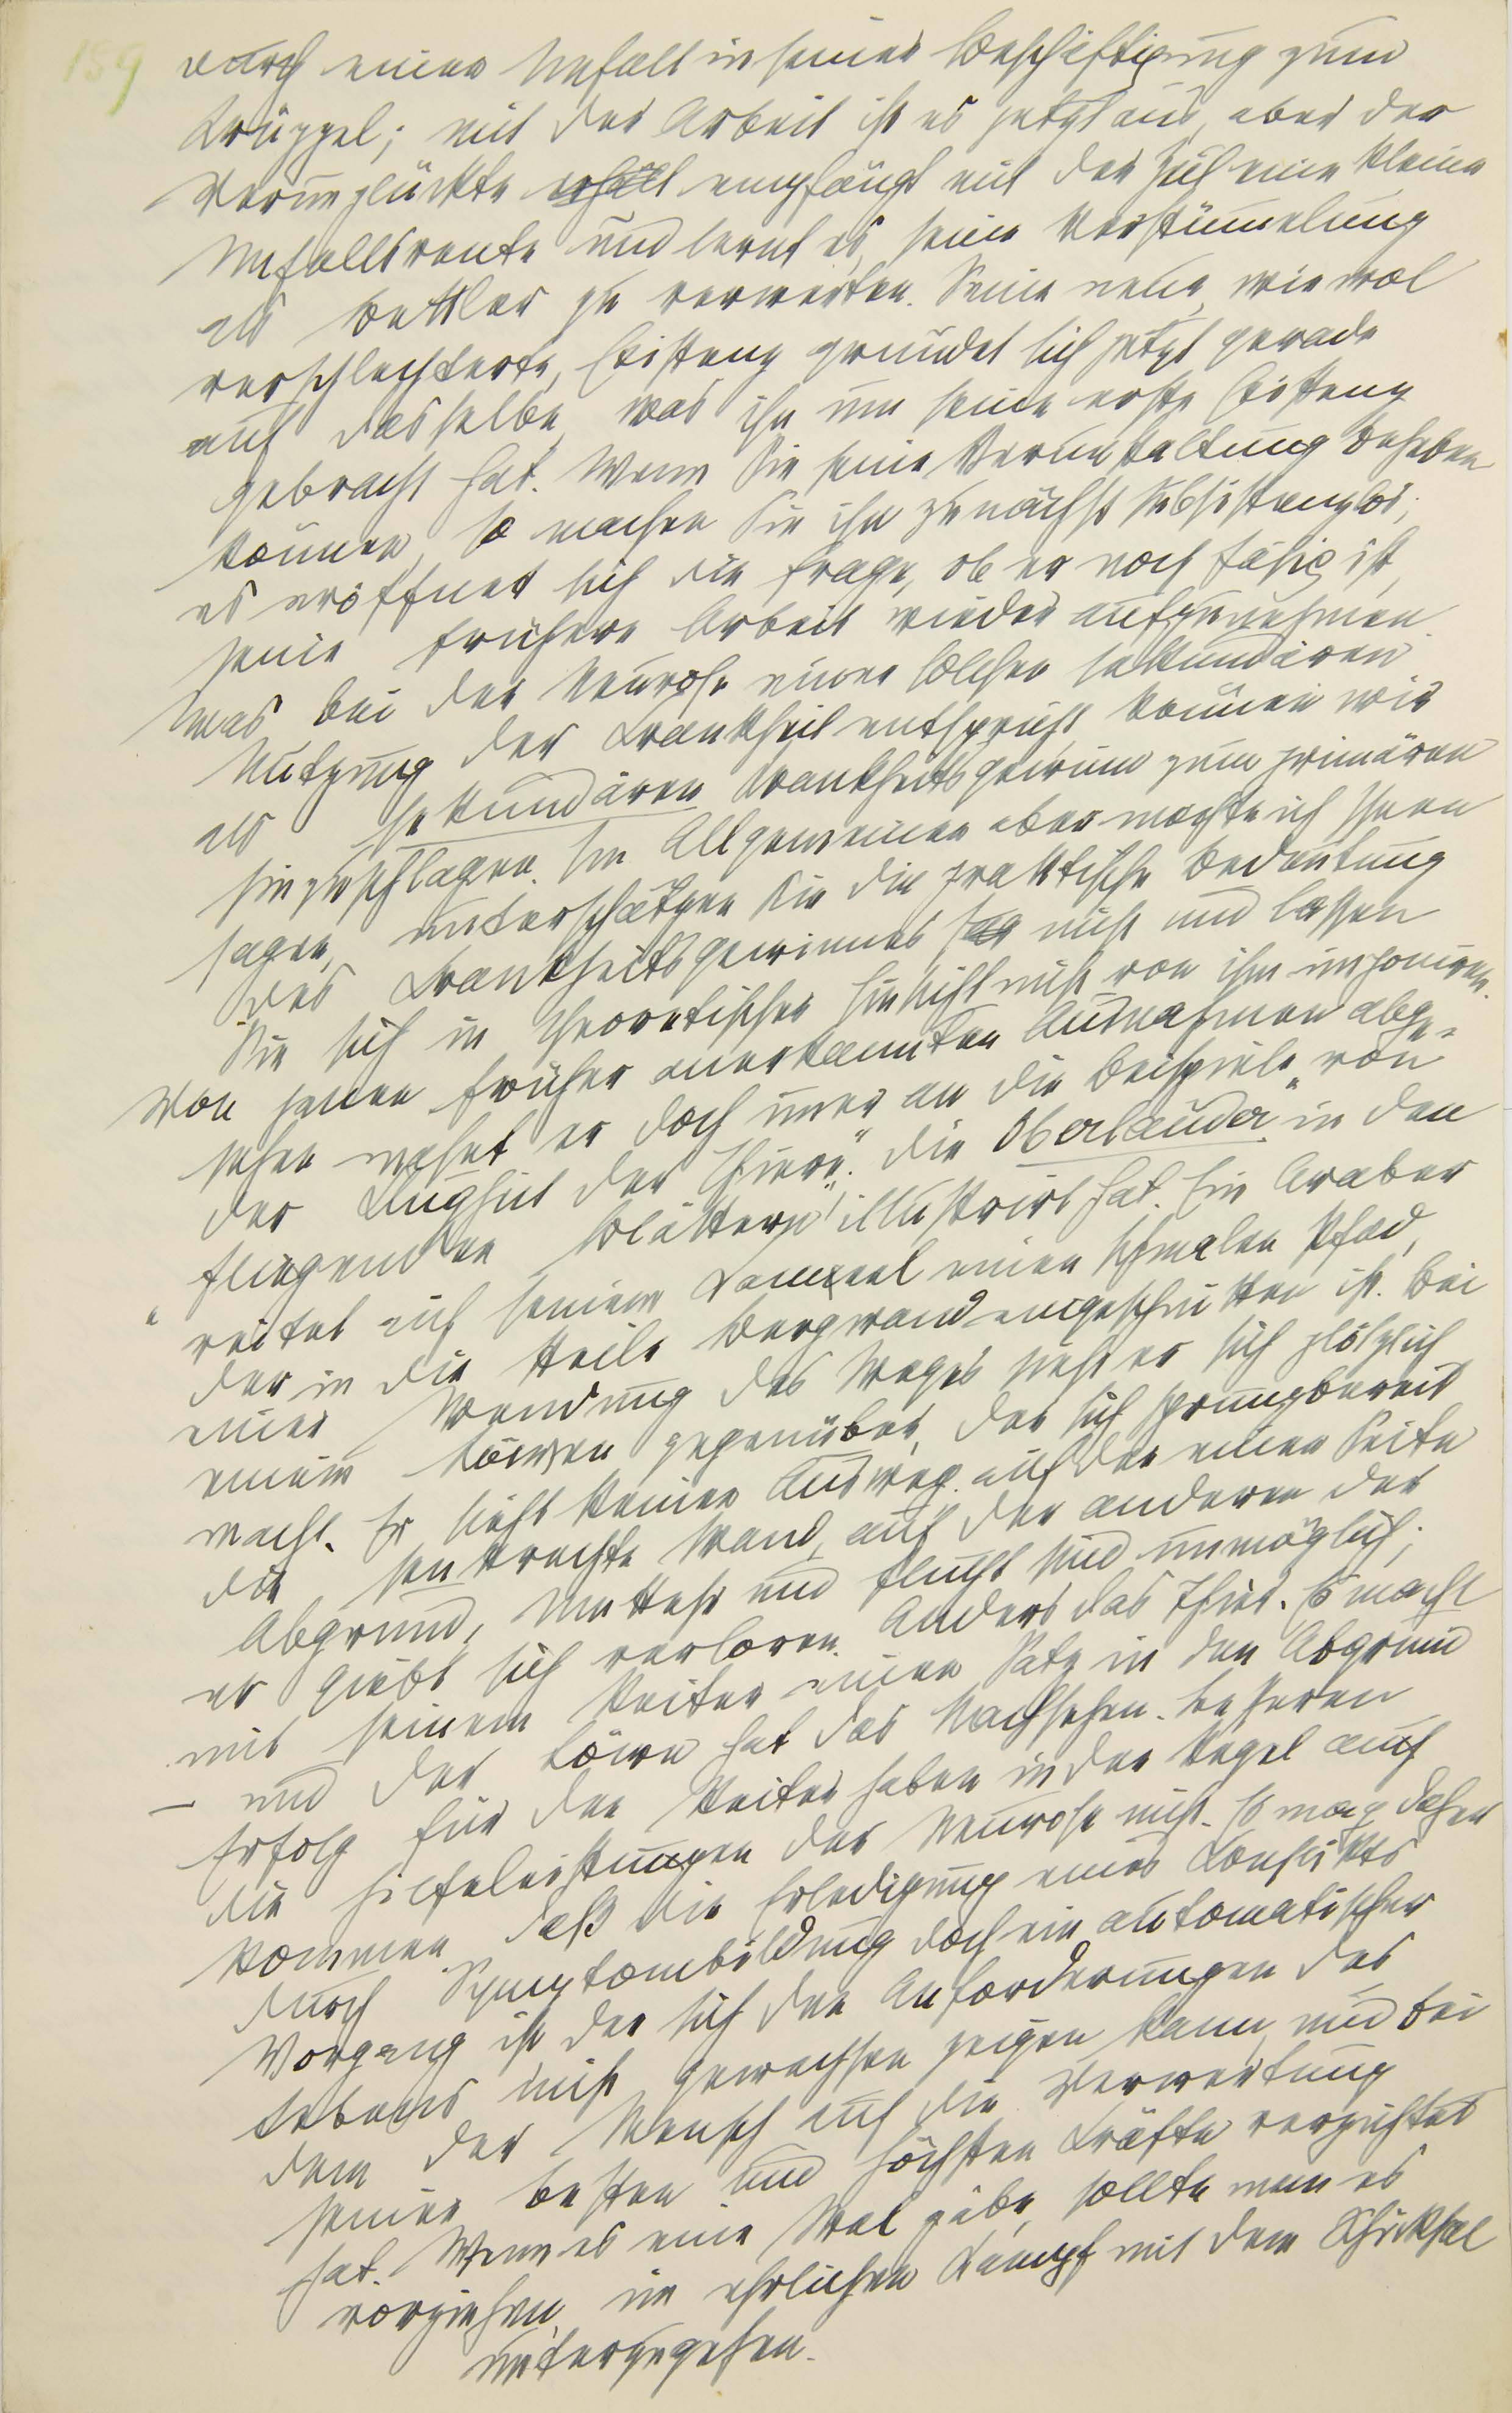 159
durch einen Unfall in seiner Beschäftigung zum
Krüppel; mit der Arbeit ist es jetzt aus, aber der
Verunglückte erhält empfängt mit der Zeit eine kleine
Unfallsrente und lernt es, seine Verstümmelung
als Bettler zu verwerten. Seine neue, wiewol
verschlechterte, Existenz gründet sich jetzt gerade
auf dasselbe, was ihn um seine erste Existenz
gebracht hat. Wenn Sie seine Verunstaltung beheben
können, so machen Sie ihn zunächst subsistenzlos;
es eröffnet sich die Frage, ob er noch fähig ist,
seine frühere Arbeit wieder aufzunehmen.
Was bei der Neurose einer solchen sekundären
Nutzung der Krankheit entspricht, können wir
als sekundären Krankheitsgewinn zum primären
hinzuschlagen. Im Allgemeinen aber möchte ich Ihnen
sagen, unterschätzen Sie die praktische Bedeutung
des Krankheitsgewinnes nicht und lassen
Sie sich in theoretischer Hinsicht nicht von ihm imponiren.
Von jenen früher anerkannten Ausnahmen abge-
sehen mahnt er doch immer an die Beispiele „von
der Klugheit der Thiere“, die Oberländer in den
„fliegenden Blättern“ illustrirt hat. Ein Araber
reitet auf seinem Kameel einen schmalen Pfad,
der in die steile Bergwand eingeschnitten ist. Bei
einer Wendung des Weges sieht er sich plötzlich
einem Löwen gegenüber, der sich sprungbereit
macht. Er sieht keinen Ausweg. auf der einen Seite
die senkrechte Wand, auf der anderen der
Abgrund, Umkehr und Flucht sind unmöglich;
er giebt sich verloren. Anders das Thier. Es macht
mit seinem Reiter einen Satz in den Abgrund
– und der Löwe hat das Nachsehen. Besseren
Erfolg für den Reiter haben in der Regel auch
die Hilfeleistungen der Neurose nicht. Es mag daher
kommen, daß die Erledigung eines Konflikts
durch Symptombildung doch ein automatischer
Vorgang ist, der sich den Anforderungen des
Lebens nicht gewachsen zeigen kann, und bei
dem der Mensch auf die Verwertung
seiner besten und höchsten Kräfte verzichtet
hat. Wenn es eine Wal gäbe, sollte man es
vorziehen, im ehrlichen Kampf mit dem Schicksal
unterzugehen.